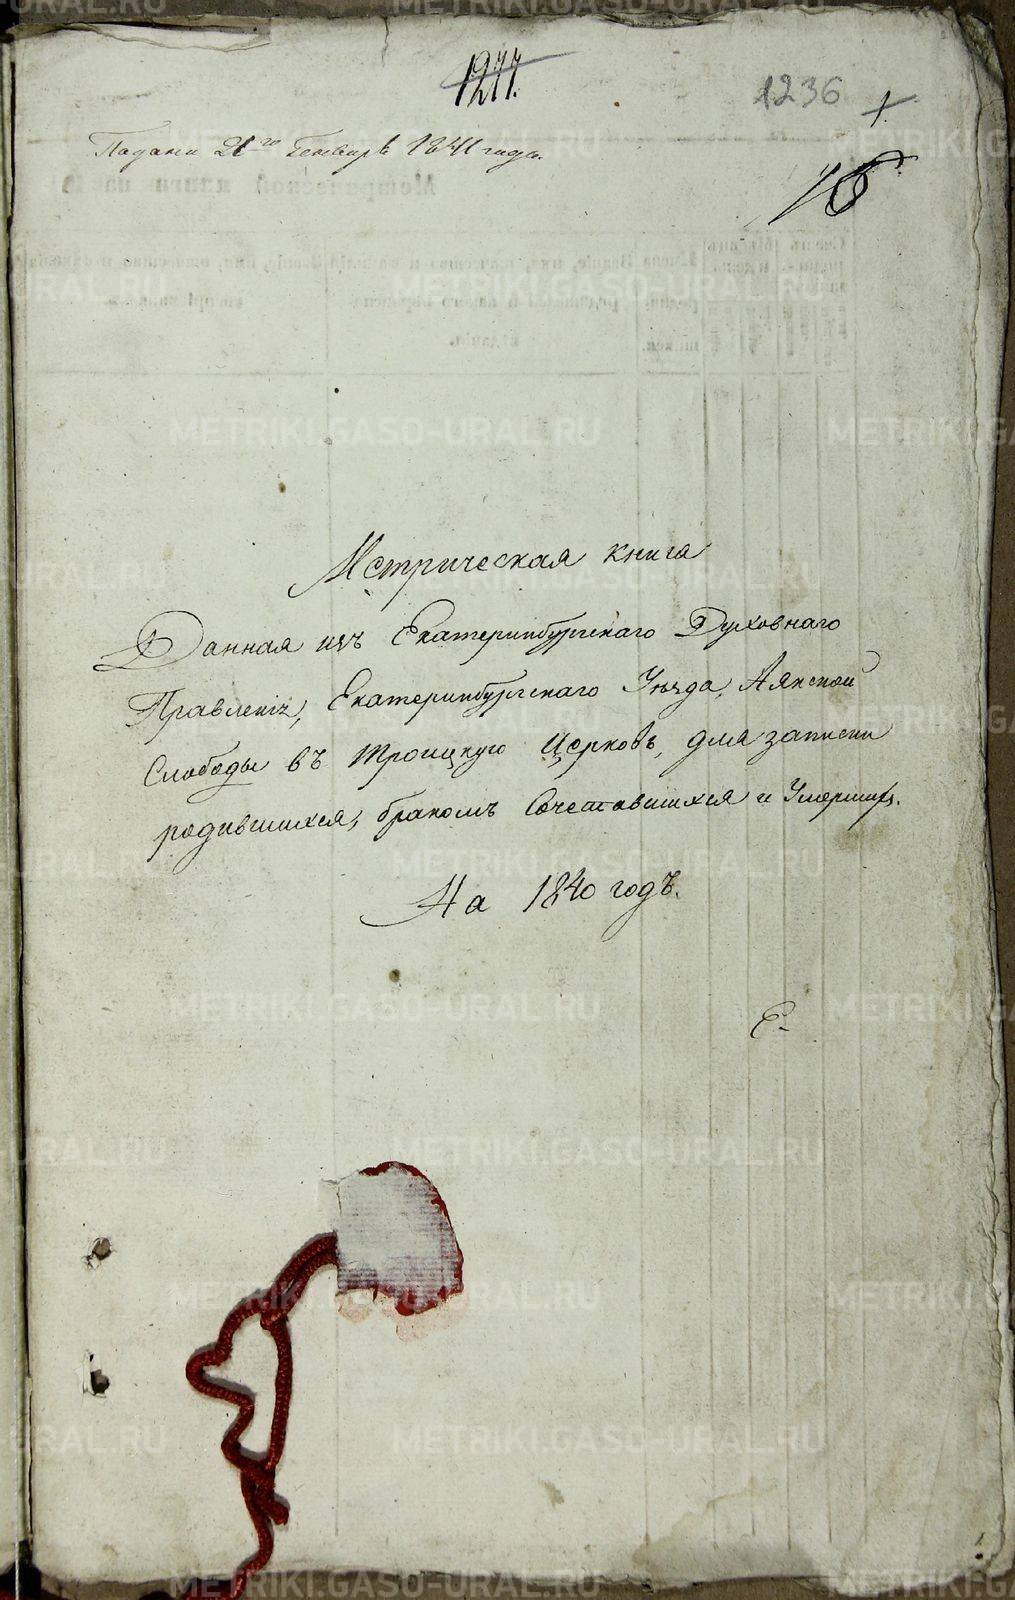 1277.
1236
1.
Подана 21го Генваря 1841 года.
Метрическая книга
Данная изъ Екатеринбургскаго Духовнаго
Правленія, Екатеринбургскаго Уѣзда, Аятской
Слободы въ Троицкую Церковь, для записки
родившихся, бракомъ Сочетавшихся и Умершихъ.
На 1840 годъ.
METRIKI.GASO-URAL.RU